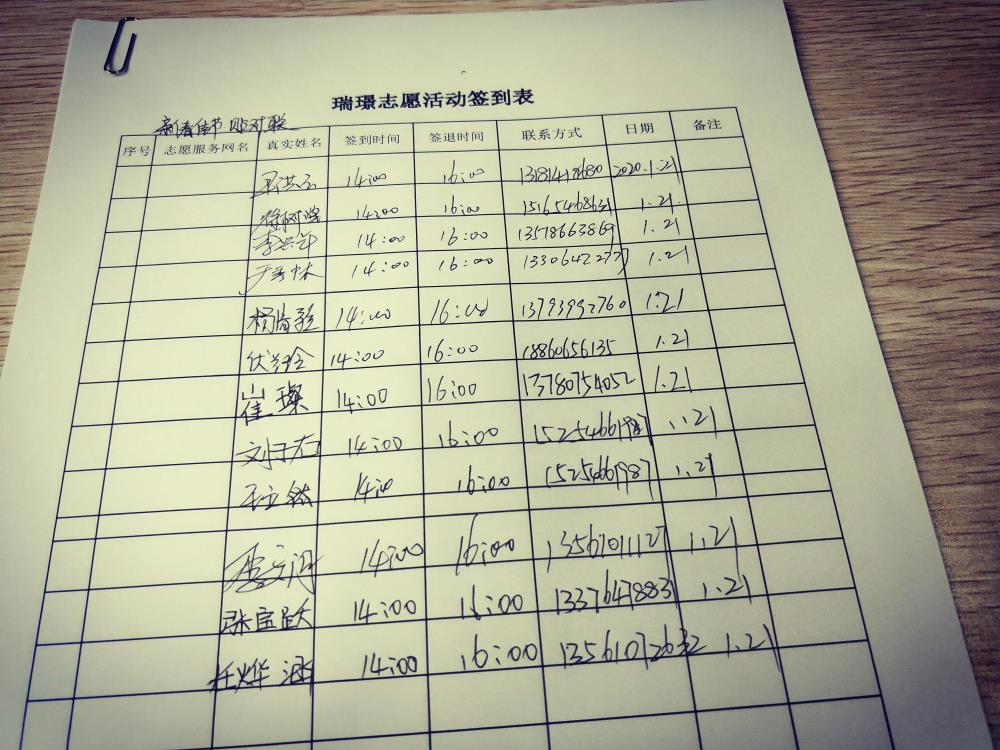 瑞璟志愿活动签到表
新春佳节 贴对联
序号 志愿服务网名 真实姓名 签到时间 签退时间 联系方式 日期 备注
14:00 16:00 2020.1.21
14:00 16:00 15165468631 1.21
李兴军 14:00 16:00 13518663869 1.21
14:00 16:00 13306422777 1.21
14:00 16:00 13793992760 1.21
14:00 16:00 18860656135 1.21
崔璨 14:00 16:00 13780754052 1.21
刘子右 14:00 16:00 15254661987 1.21
14:00 16:00 15254661987 1.21
14:00 16:00 13561011127 1.21
张宝跃 14:00 16:00 13376478831 1.21
任烨涵 14:00 16:00 1.21